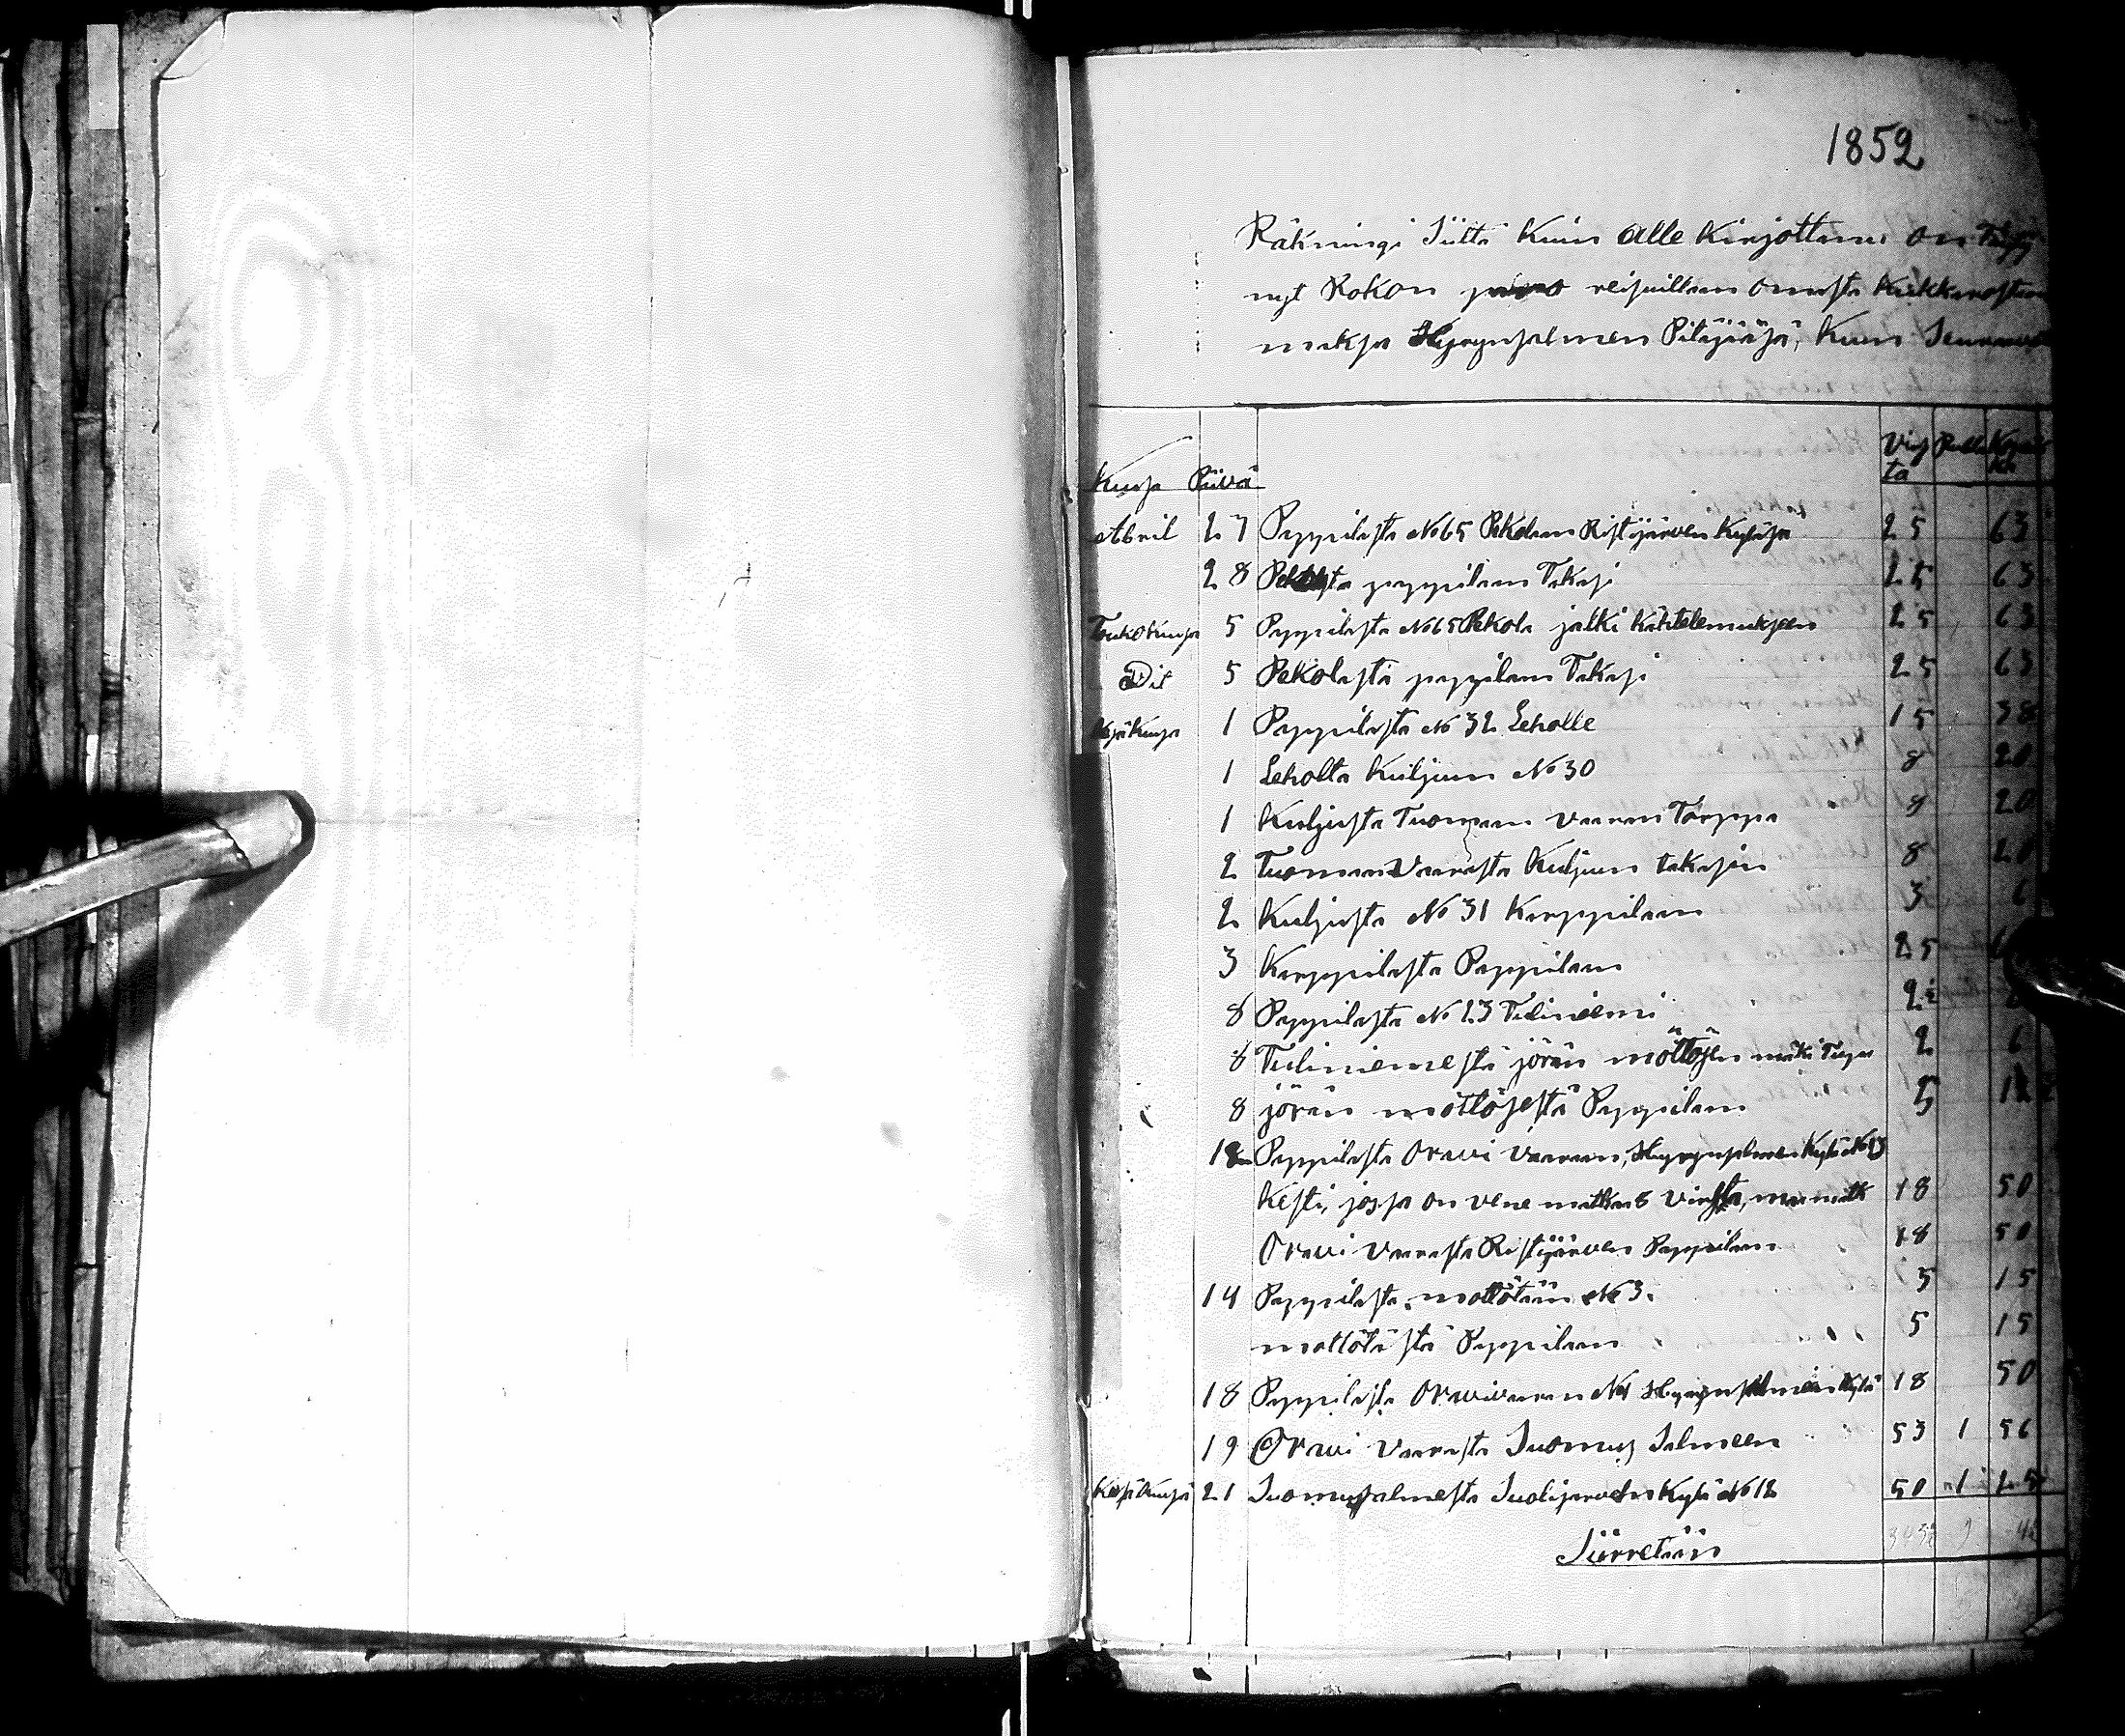 1852
Räkningi Siitä kuin alle kirjottanu on
nyt Rokon reisuillan omasta kukkarostan
maksa Hyrynsalmen Pitäjääsä, kuin
Virs Rubla
ta
Kuusa Päivä
Abril 27 Pappilasta No 65 Pekolan Ristijärven Kyläsa 25 63
28 pappilaan Takasi 25 63
Toukokuusa 5 Pappilasta No 65 Pekola jälki kähtelemukseen 25 63
Dit 5 Pekolasta pappilaan Takasi 25 63
Kesäkuusa 1 Pappilasta No 32 Leholle 15 38
1 Leholta Kuljuun No 30 8 20
1 Kuljusta Tuoman vaaran Torppa 8 20
2 Tuoman Vaarasta Kuljuun takasin 8 20
2 Kuljusta No 31 Karppilaan 3 6
3 Karppilasta Pappilaan 25
8 Pappilasta No 23 Tuliniemi 2½
8 Tuliniemestä jörän möttöjen mäki Tupa 2 6
8 jörän möttöjestä Pappilaan 5 12
18 Pappilasta Oravi Vaaraan, Hyrynsalmen Kylä No 13
Kesti, jossa on vene matkaa 8 virsta, maa matk 18 50
Oravi Vaarasta Ristijärven Pappilaan 18 50
14 Pappilasta mottötään No 3. 5 15
mottötästä Pappilaan 5 15
18 Pappilasta Oravivaaraan No 1 Hyrynsalmen Kylä 18 50
19 Oravi Vaarasta Suomus Salmeen 53 1 56
Kesäkuusa 21 Suomussalmesta Suolijärven Kylä No 12 50 1 25
Siirretään